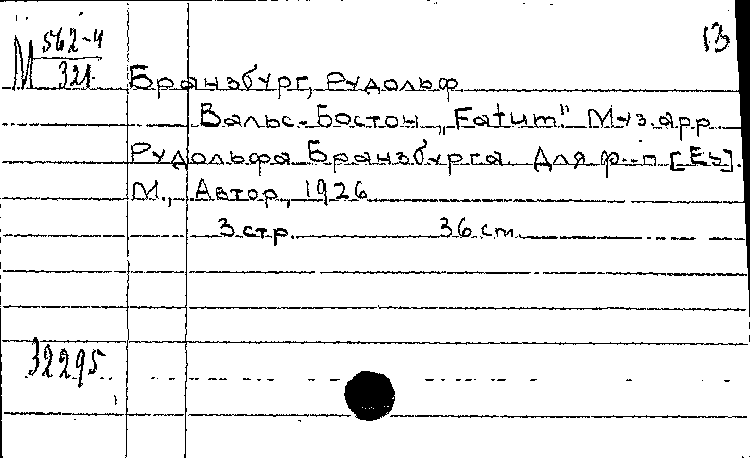 13
М 562-4
321
Бранзбург, Рудольф
Вальс-Бостон „Fatum." Муз. арр.
Рудольфа Бранзбурга. Для ф.-п. [Es].
М., Автор, 1926
3 стр. 36 cm.
32295